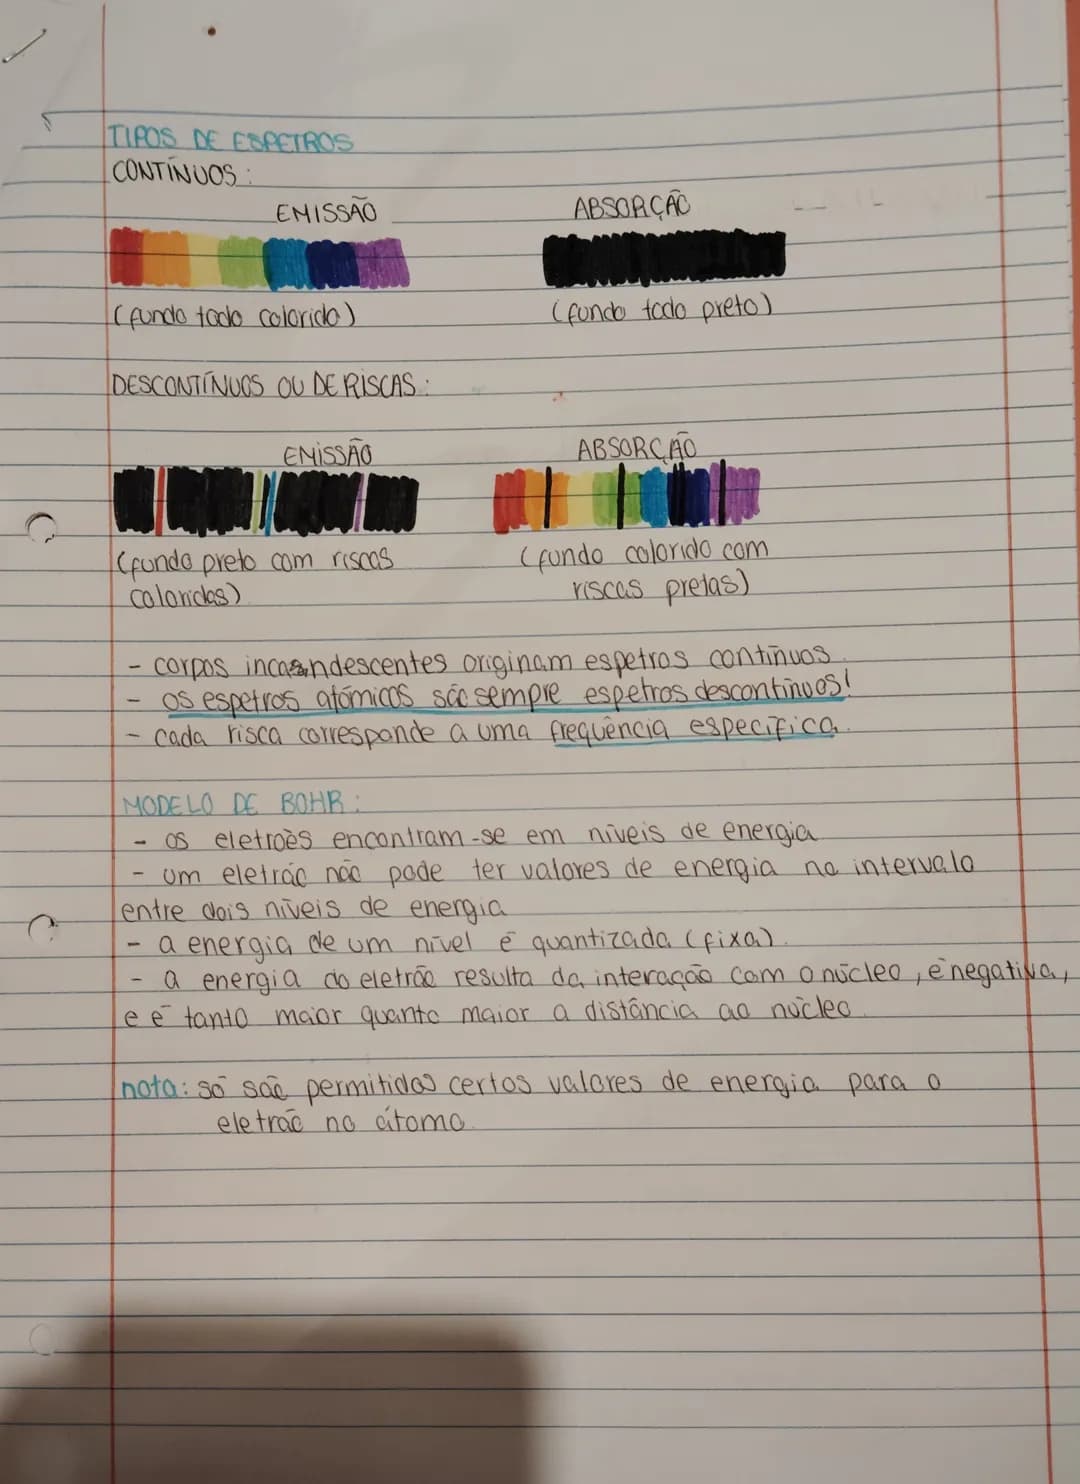 TIPOS DE ESPETROS
CONTÍNUOS:
EMISSÃO ABSORÇÃO
(fundo todo colorido) (fundo todo preto)
DESCONTÍNUOS OU DE RISCAS:
EMISSÃO ABSORÇÃO
(fundo preto com riscas (fundo colorido com
coloridas) riscas pretas)
- corpos incandescentes originam espetros contínuos.
- os espetros atómicos são sempre espetros descontínuos!
- cada risca corresponde a uma frequência específica.
MODELO DE BOHR:
- os eletrões encontram-se em níveis de energia
- um eletrão não pode ter valores de energia no intervalo
entre dois níveis de energia
- a energia de um nível é quantizada (fixa).
- a energia do eletrão resulta da interação com o núcleo, é negativa,
e é tanto maior quanto maior a distância ao núcleo.
nota: só são permitidos certos valores de energia para o
eletrão no átomo.